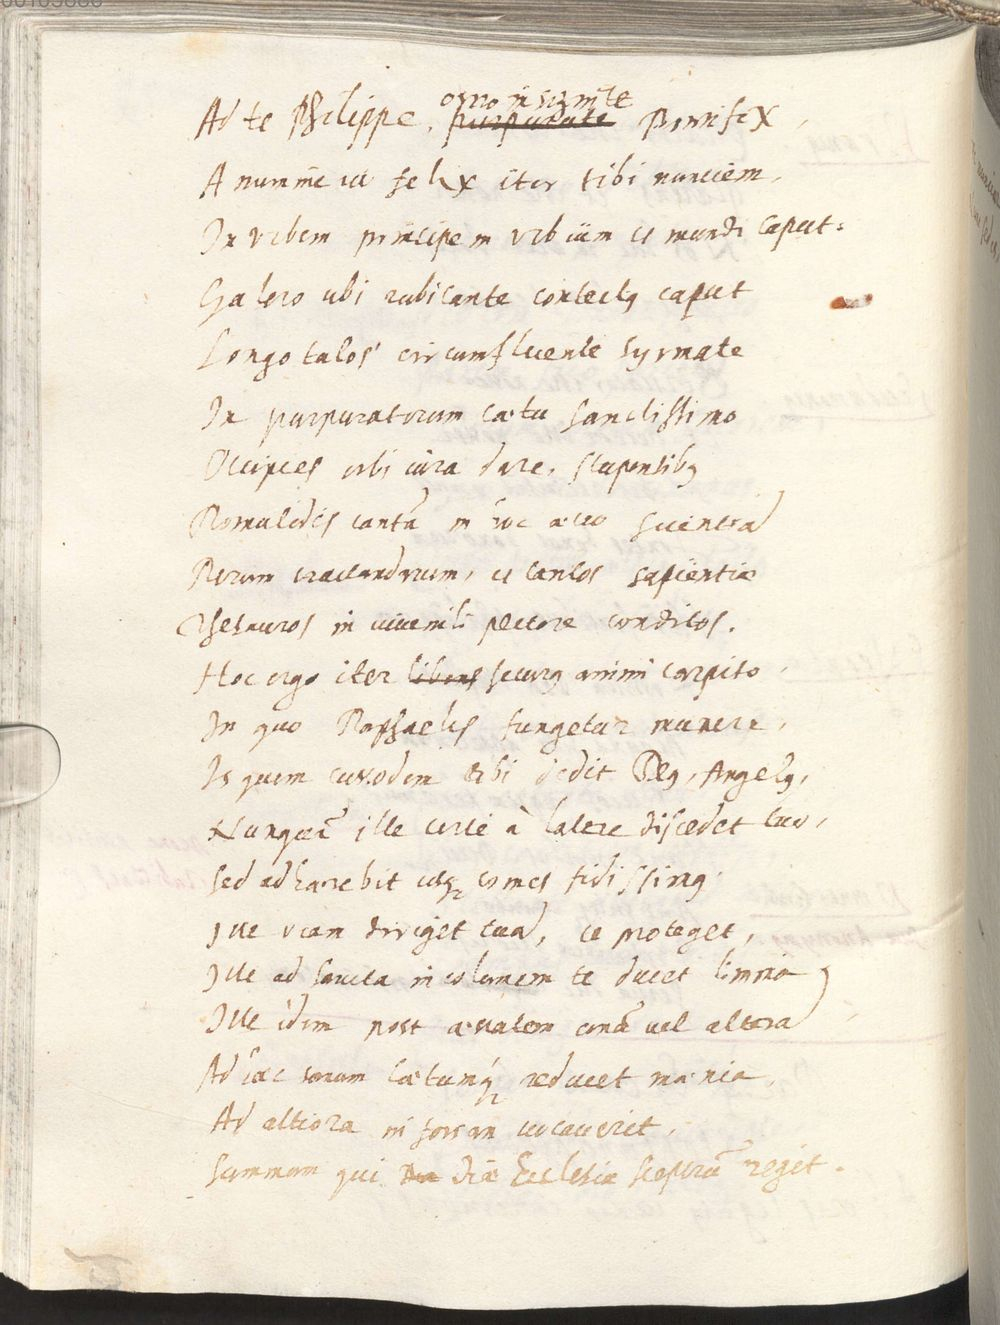 ostro insignite
Ad te Philippe, purpurate Pontifex,
A numine ut felix iter tibi nunciem,
In urbem principem urbium et mundi caput.
Galero ubi rubicante contectq caput
Longo talos circumfluente syrmate
In purpuratorum cætu sanctissimo
Occupies orbi iura dare, stupentibq
Romulidis tantã in hoc æuo scientia
Rerum tractandarum, et tantos sapientiæ
Thesauros in iuuenili pectore conditos.
Hoc ergo iter libens securq animi carpito,
In quo Raphaelis fungetur munere,
Is quem custodem tibi dedit Deq, Angelq,
Nunquã ille certè à latere discedet tuo,
Sed adhærebit usq comes fidissimq.
Ille viam diriget tuã, te proteget,
Ille ad sancta incolumem te ducet limina
Ille idem post æstatem unã vel altera
Ad hæc sonum lætumq reducet mænia,
Ad altiora ni forsan uocauerit,
Summam qui diæ Ecclesiæ sceptrũ reget.